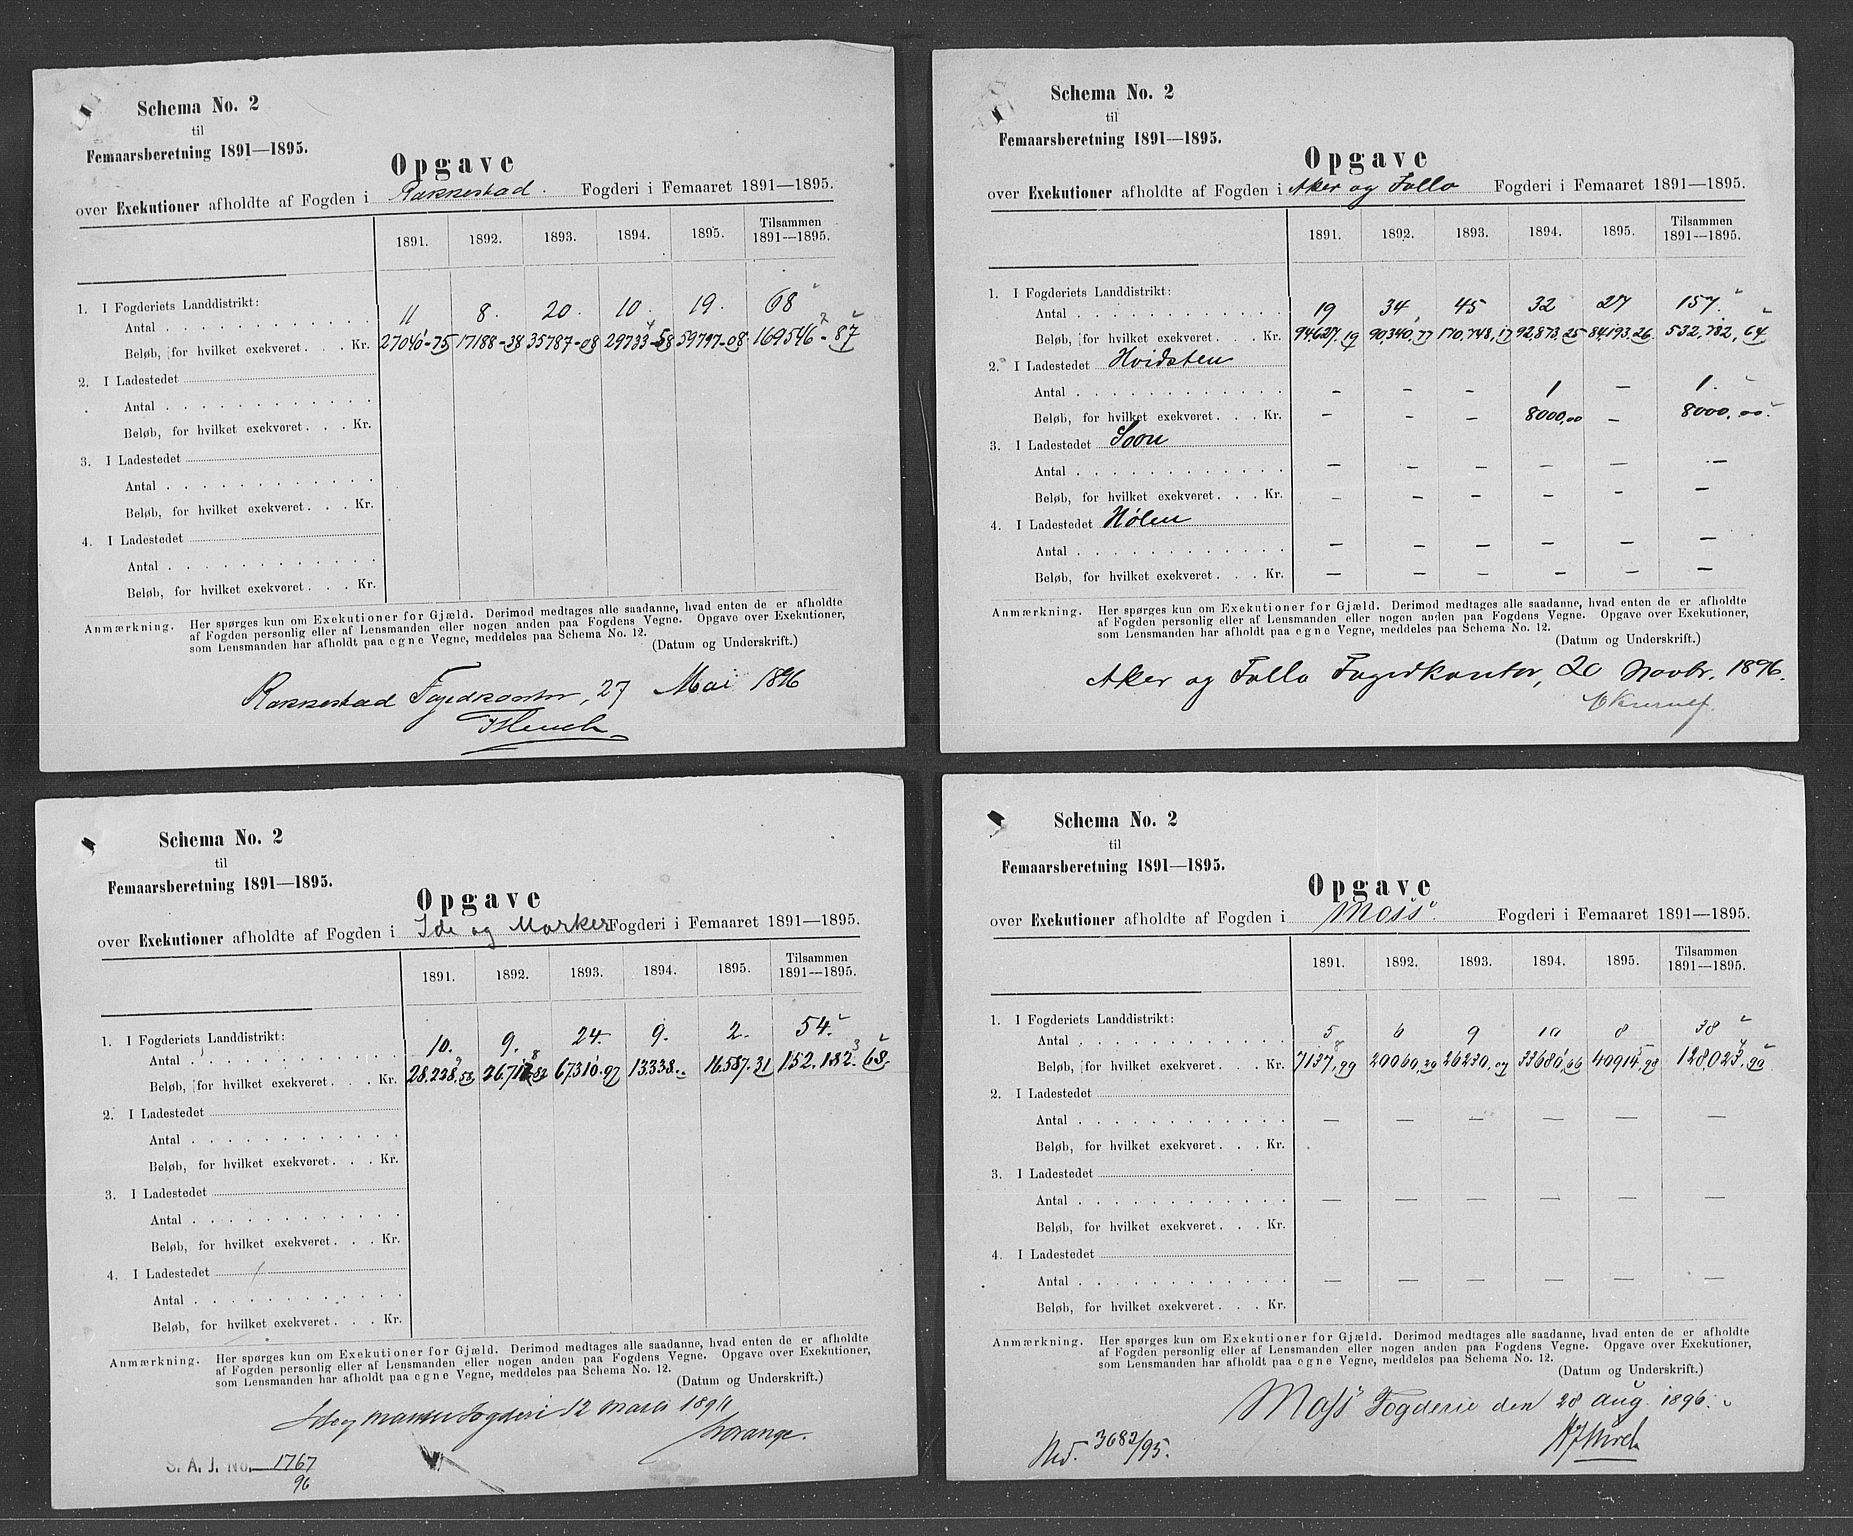 Schema No. 2
til
Femaarsberetning 1891—1895.
Opgave
over Exekutioner afholdte af Fogden i Rakkestad. Fogderi i Femaaret 1891—1895.
1891. 1892. 1893. 1894. 1895. Tilsammen 1891—1895.
1. I Fogderiets Landdistrikt:
Antal 11 8. 20. 10. 19. 68
Beløb, for hvilket exekveret Kr. 27040-75 17188-38 35787-08 29733-58 59797-08 169546-87
2. I Ladestedet
Antal
Beløb, for hvilket exekveret Kr.
3. I Ladestedet
Antal
Beløb, for hvilket exekveret Kr.
4. I Ladestedet
Antal
Beløb, for hvilket exekveret Kr.
Anmærkning. Her spørges kun om Exekutioner for Gjæld. Derimod medtages alle saadanne, hvad enten de er afholdte
af Fogden personlig eller af Lensmanden eller nogen anden paa Fogdens Vegne. Opgave over Exekutioner,
som Lensmanden har afholdt paa egne Vegne, meddeles paa Schema No. 12.
(Datum og Underskrift.)
Rakkestad Fogedkontor, 27 Mai 1896
Schema No. 2
til
Femaarsberetning 1891—1895.
Opgave
over Exekutioner afholdte af Fogden i Aker og Follo Fogderi i Femaaret 1891—1895.
1891. 1892. 1893. 1894. 1895. Tilsammen 1891—1895.
1. I Fogderiets Landdistrikt:
Antal 19 34 45 32 27 157.
Beløb, for hvilket exekveret Kr. 94627,19 90,340,77 170,748,17 92,873,25 84,193,26 532,782,64
2. I Ladestedet Hvidsten
Antal – – – 1 – 1.
Beløb, for hvilket exekveret Kr. – – – 8000,00 – 8000,00.
3. I Ladestedet Soon
Antal – – – – – –
Beløb, for hvilket exekveret Kr. – – – – – –
4. I Ladestedet Hølen
Antal – – – – – –
Beløb, for hvilket exekveret Kr. – – – – – –
Anmærkning. Her spørges kun om Exekutioner for Gjæld. Derimod medtages alle saadanne, hvad enten de er afholdte
af Fogden personlig eller af Lensmanden eller nogen anden paa Fogdens Vegne. Opgave over Exekutioner,
som Lensmanden har afholdt paa egne Vegne, meddeles paa Schema No. 12.
(Datum og Underskrift.)
Aker og Follo Fogedkontor, 20 Novbr. 1896.
Schema No. 2
til
Femaarsberetning 1891—1895.
Opgave
over Exekutioner afholdte af Fogden i Ide og Marker Fogderi i Femaaret 1891—1895.
1891. 1892. 1893. 1894. 1895. Tilsammen 1891—1895.
1. I Fogderiets Landdistrikt:
Antal 10. 9. 24. 9. 2. 54.
Beløb, for hvilket exekveret Kr. 28.238,53 67310.97 13.338.- 16.587.31 152.182.68.
2. I Ladestedet
Antal
Beløb, for hvilket exekveret Kr.
3. I Ladestedet
Antal
Beløb, for hvilket exekveret Kr.
4. I Ladestedet
Antal
Beløb, for hvilket exekveret Kr.
Anmærkning. Her spørges kun om Exekutioner for Gjæld. Derimod medtages alle saadanne, hvad enten de er afholdte
af Fogden personlig eller af Lensmanden eller nogen anden paa Fogdens Vegne. Opgave over Exekutioner,
som Lensmanden har afholdt paa egne Vegne, meddeles paa Schema No. 12.
(Datum og Underskrift.)
Ide og Marker Fogderi 12 marts 1896
Lorange.
S. A. J. No. 1767
96
Schema No. 2
til
Femaarsberetning 1891—1895.
Opgave
over Exekutioner afholdte af Fogden i Moss Fogderi i Femaaret 1891—1895.
1891. 1892. 1893. 1894. 1895. Tilsammen 1891—1895.
1. I Fogderiets Landdistrikt:
Antal 5 6 9 10 8 38
Beløb, for hvilket exekveret Kr. 7137,99 20060,20 26230,07 33680,66 40914,98 128,023,90
2. I Ladestedet
Antal — — — — — —
Beløb, for hvilket exekveret Kr.
3. I Ladestedet
Antal — — — — — —
Beløb, for hvilket exekveret Kr.
4. I Ladestedet
Antal — — — — — —
Beløb, for hvilket exekveret Kr.
Anmærkning. Her spørges kun om Exekutioner for Gjæld. Derimod medtages alle saadanne, hvad enten de er afholdte
af Fogden personlig eller af Lensmanden eller nogen anden paa Fogdens Vegne. Opgave over Exekutioner,
som Lensmanden har afholdt paa egne Vegne, meddeles paa Schema No. 12.
(Datum og Underskrift.)
Moss Fogderie den 28 Aug. 1896.
3682/95.